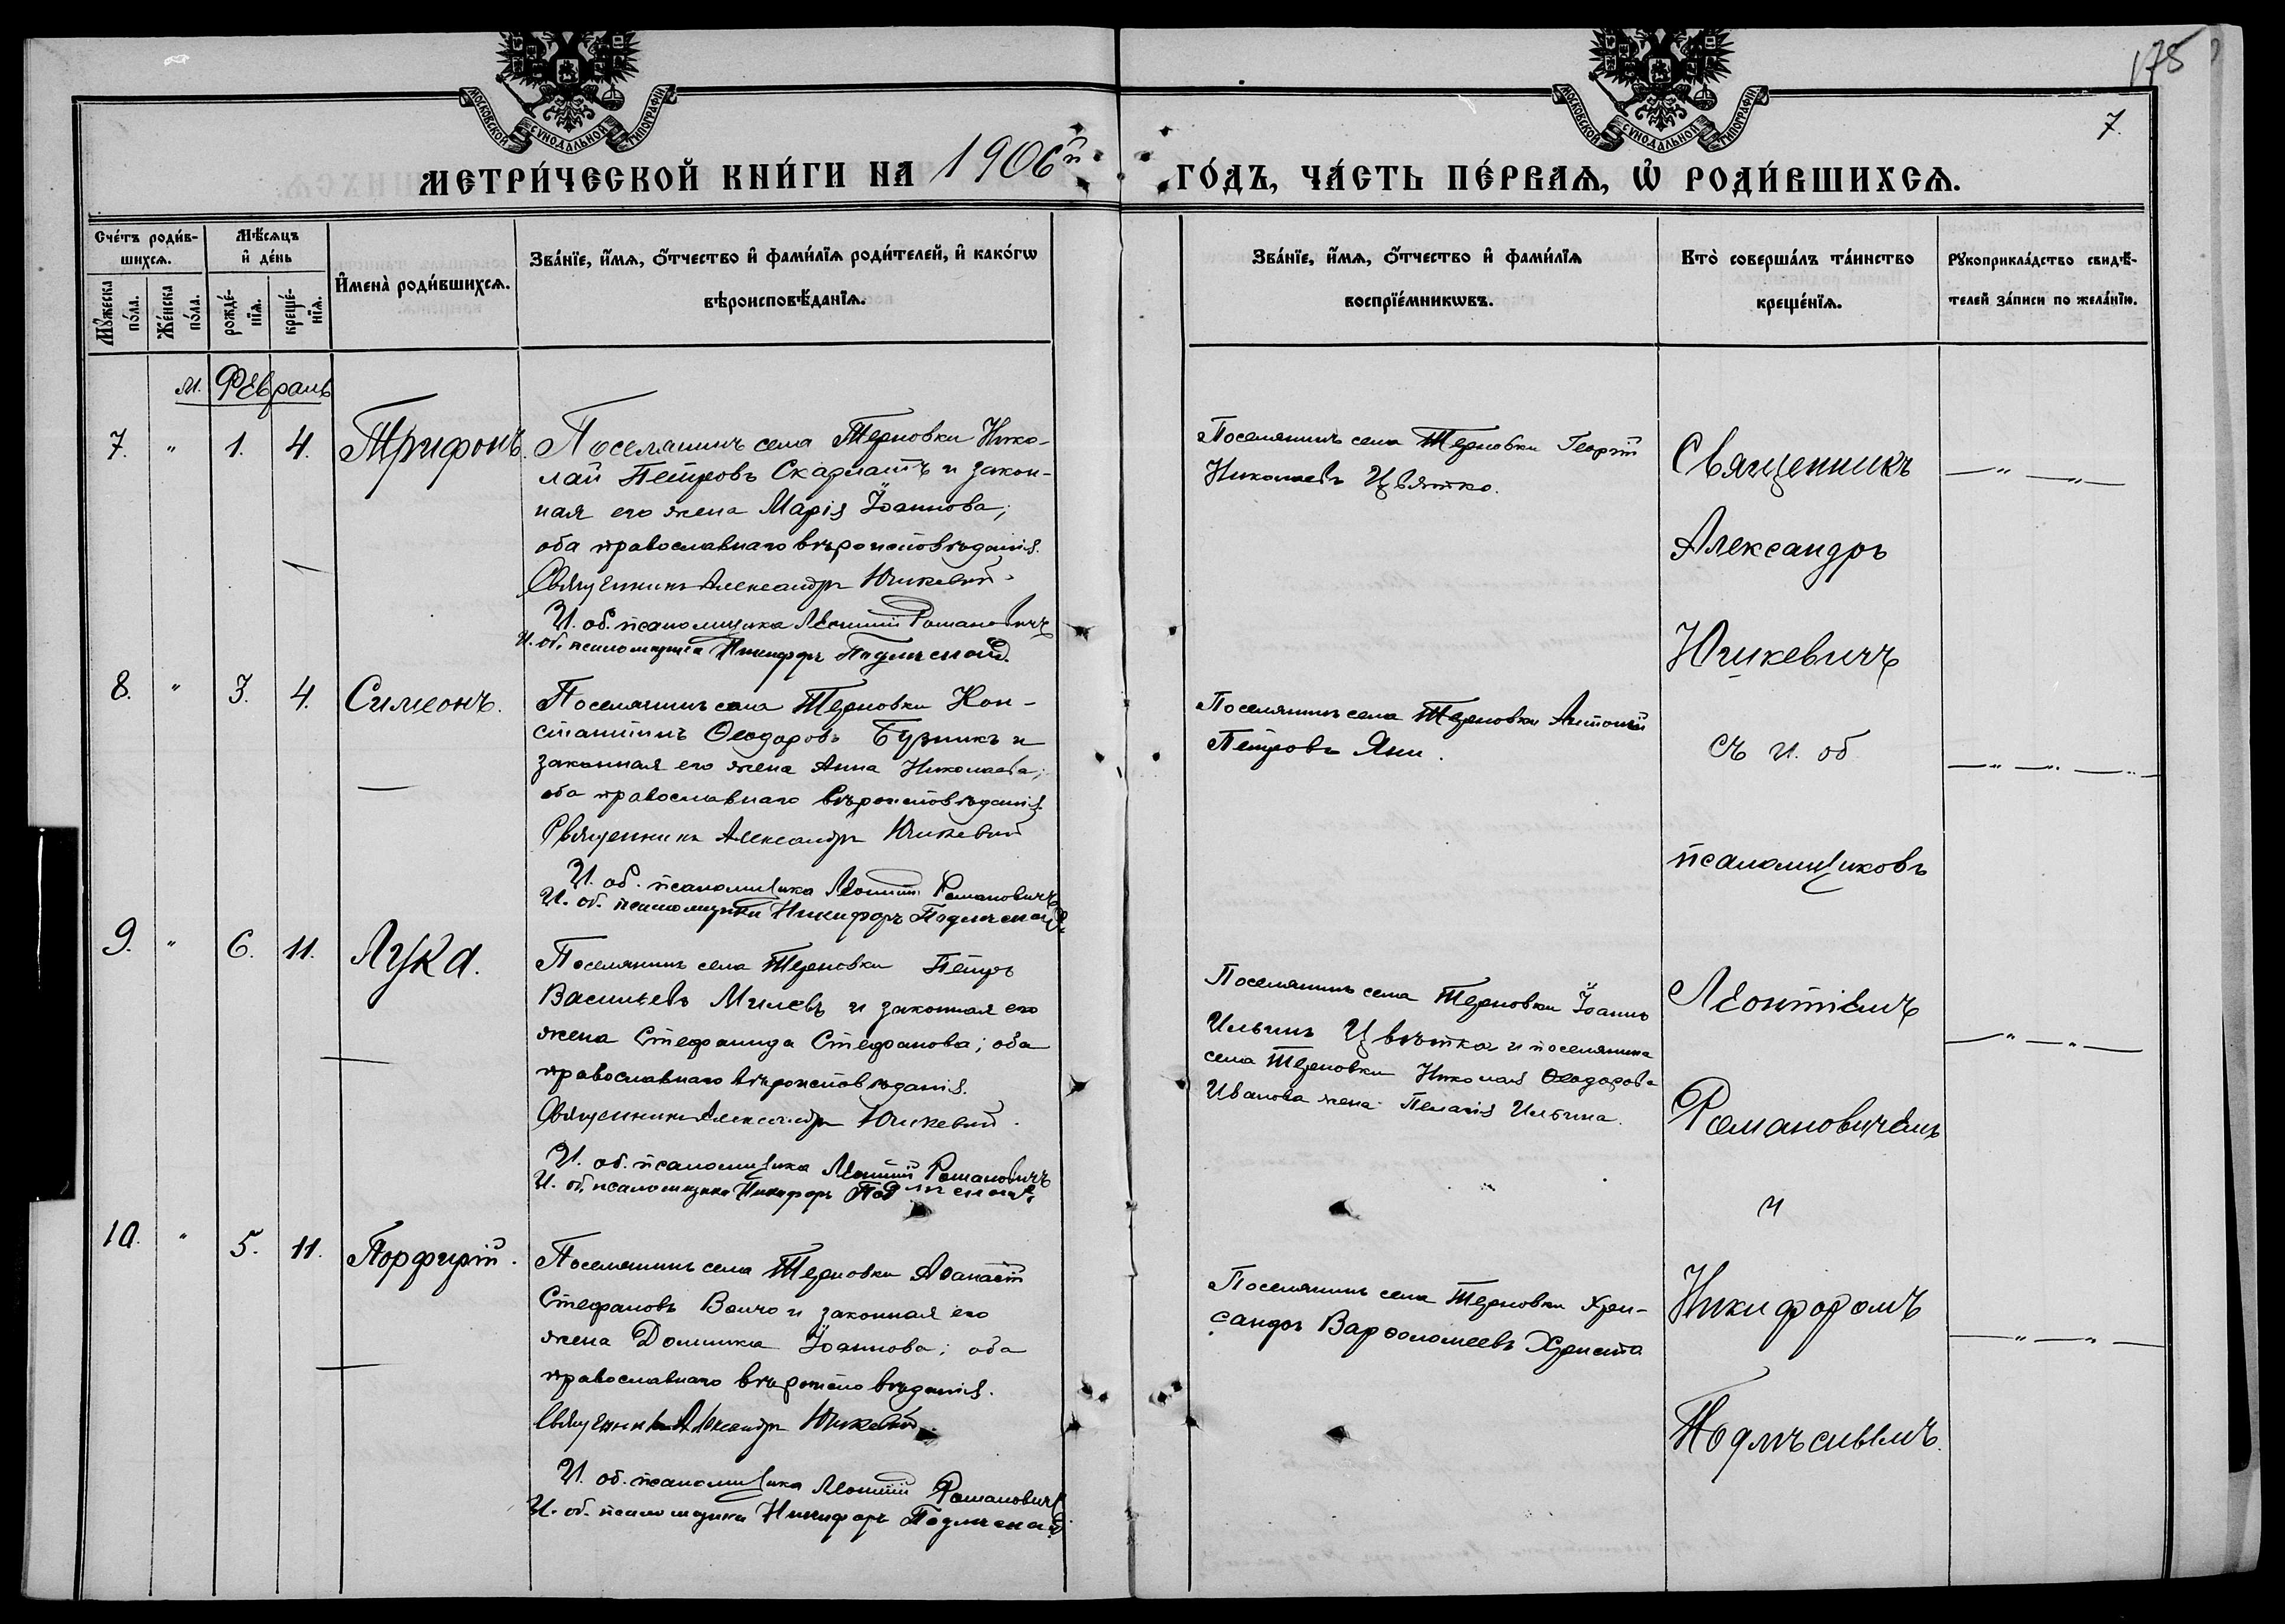 175
7.
МОСКОВСКОЙ СУНОДАЛЬНОЙ ТИПОГРАФІИ
МОСКОВСКОЙ СУНОДАЛЬНОЙ ТИПОГРАФІИ
МЕТРИ́ЧЕСКОЙ КНИ́ГИ НА 1906й ГО́ДЪ, ЧА́СТЬ ПЕ́РВАѦ, Ѡ҆ РОДИ́ВШИХСѦ.
Сче́тъ роди́в-
шихсѧ.
Мꙋ́жеска
по́ла.
Же́нска
по́ла.
Мѣ́сѧцъ
и҆ де́нь
рожде́-
нїѧ.
креще́-
нїѧ.
И҆мена̀ роди́вшихсѧ.
Зва́нїе, и҆́мѧ, ѻ҆́тчество и҆ фами́лїѧ роди́телей, и҆ како́гѡ
вѣроисповѣ́данїѧ.
Зва́нїе, и҆́мѧ, ѻ҆́тчество и҆ фами́лїѧ
воспрїе́мникѡвъ.
Кто̀ соверша́лъ та́инство
креще́нїѧ.
Рꙋкоприкла́дство свидѣ́-
телей за́писи по жела́нїю.
м. Февраль
7. " 1. 4. Трифонъ.
Поселянинъ села Терновки Нико-
лай Петровъ Скарлатъ и закон-
ная его жена Марія Іоаннова;
оба православнаго вѣроисповѣданія.
Священникъ Александръ Юшкевич
И. об. псаломщика Леонтій Романовичъ
И. об. псаломщика Никифоръ Подлѣсный.
Поселянинъ села Терновки Георгій
Николаевъ Цвятко.
8. " 3. 4. Симеонъ.
Поселянинъ села Терновки Кон-
стантинъ Ѳеодоровъ Бузникъ и
законная его жена Анна Николаева;
оба православнаго вѣроисповѣданія.
Священникъ Александръ Юшкевич
И. об. псаломщика Леонтій Романовичъ
И. об. псаломщика Никифоръ Подлѣсный.
Поселянинъ села Терновки Антоній
Петровъ Яни.
9. " 6. 11. Лука.
Поселянинъ села Терновки Петръ
Васильевъ Милевъ и законная его
жена Стефанида Стефанова; оба
православнаго вѣроисповѣданія.
Священникъ Александръ Юшкевич.
И. об. псаломщика Леонтій Романовичъ
И. об. псаломщика Никифоръ Подлѣсный.
Поселянинъ села Терновки Іоаннъ
Ильинъ Цвѣтко и поселянина
села Терновки Николая Ѳеодорова
Иванова жена Пелагія Ильина.
10. " 5. 11. Порфирій.
Поселянинъ села Терновки Аѳанасій
Стефановъ Волчо и законная его
жена Домника Іоаннова; оба
православнаго вѣроисповѣданія.
Священникъ Александръ Юшкевич.
И. об. псаломщика Леонтій Романовичъ
И. об. псаломщика Никифоръ Подлѣсный.
Поселянинъ села Терновки Хри-
сандръ Варѳоломеевъ Христа
Священникъ
Александръ
Юшкевичъ
съ и. об
псаломщиковъ
Леонтіемъ
Романовичемъ
и
Никифоромъ
Подлѣснымъ.